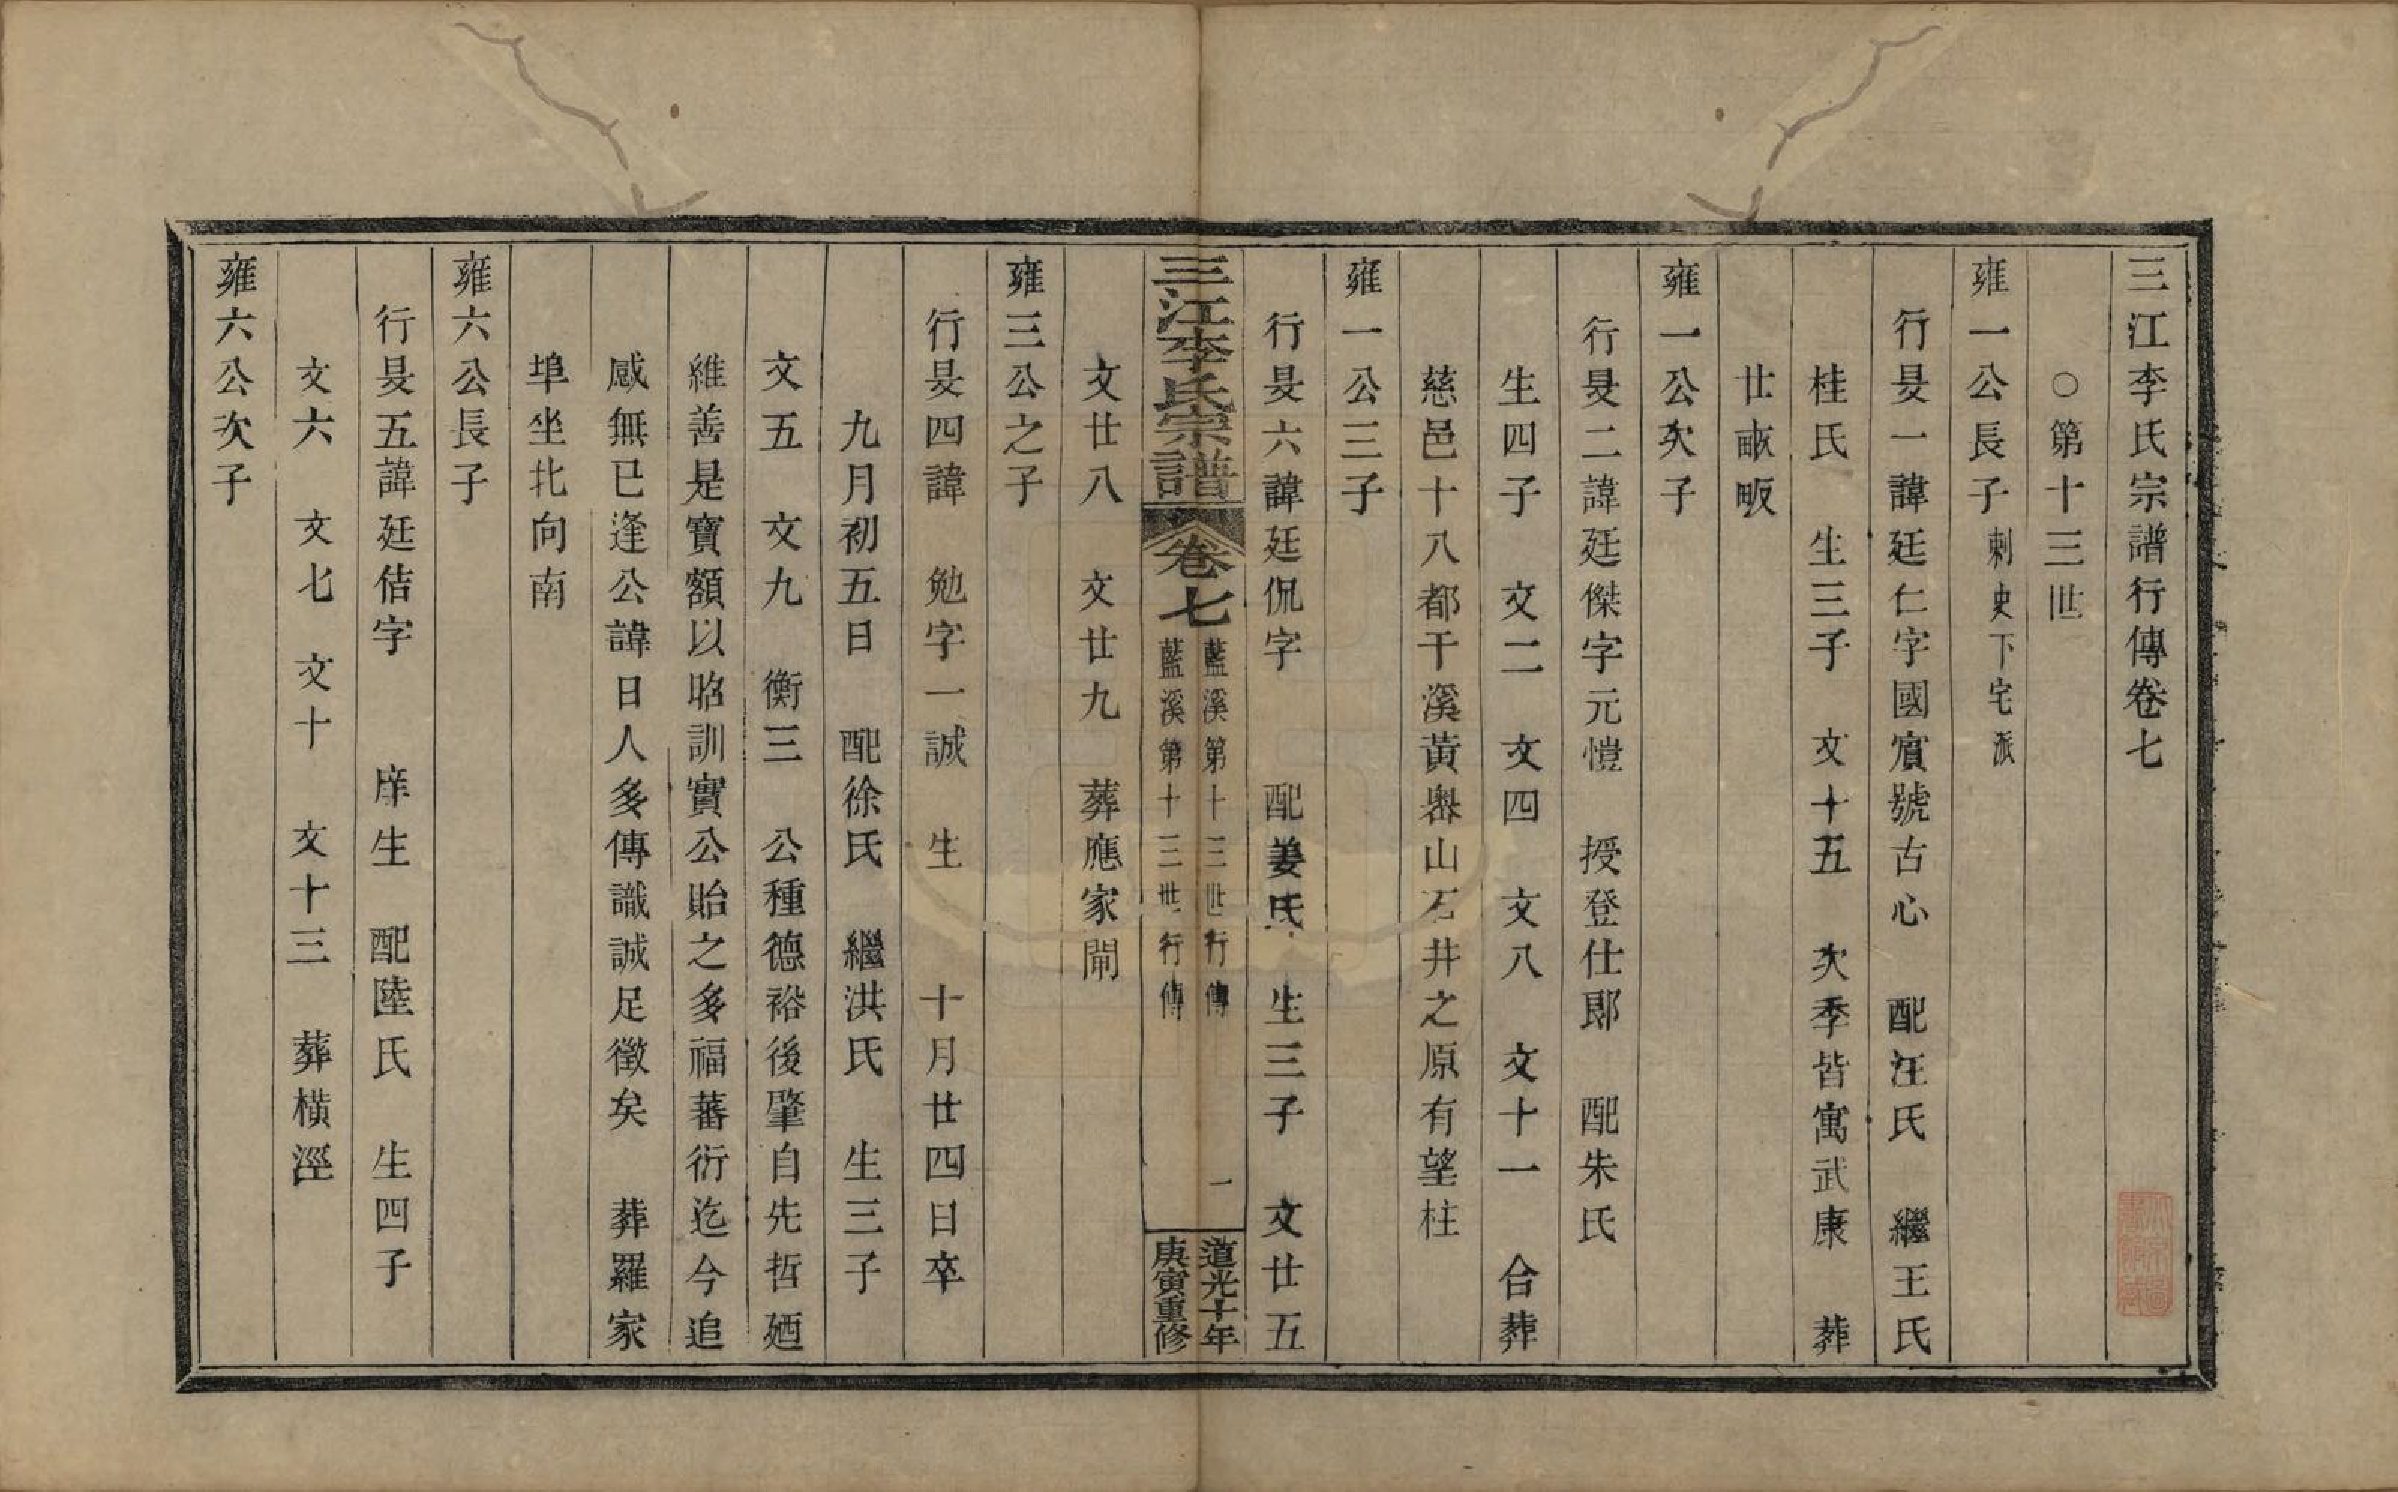 三江李氏宗譜行傳卷七
○第十三世
雍一公長子刺史下宅派
行旻一諱廷仁字國賔號古心 配汪氏 繼王氏
桂氏 生三子 文十五 次季皆寓武康 葬
廿畝畈
雍一公次子
行旻二諱廷傑字元愷 授登仕郎 配朱氏
生四子 文二 文四 文八 文十一 合葬
慈邑十八都干溪黃㟁山石井之原有望柱
雍一公三子
行旻六諱廷侃字 配姜氏 生三子 文廿五
三江李氏宗譜 卷七 藍溪第十三世行傳 一 道光十年
藍溪第十三世行傳 庚寅重修
文廿八 文廿九 葬應家閙
雍三公之子
行旻四諱 勉字一誠 生 十月廿四日卒
九月初五日 配徐氏 繼洪氏 生三子
文五 文九 衡三 公種德裕後肇自先哲廼
維善是寶額以昭訓實公貽之多福蕃衍迄今追
感無已逢公諱日人多傳識誠足徵矣 葬羅家
埠坐北向南
雍六公長子
行旻五諱廷佶字 庠生 配陸氏 生四子
文六 文七 文十 文十三 葬橫涇
雍六公次子